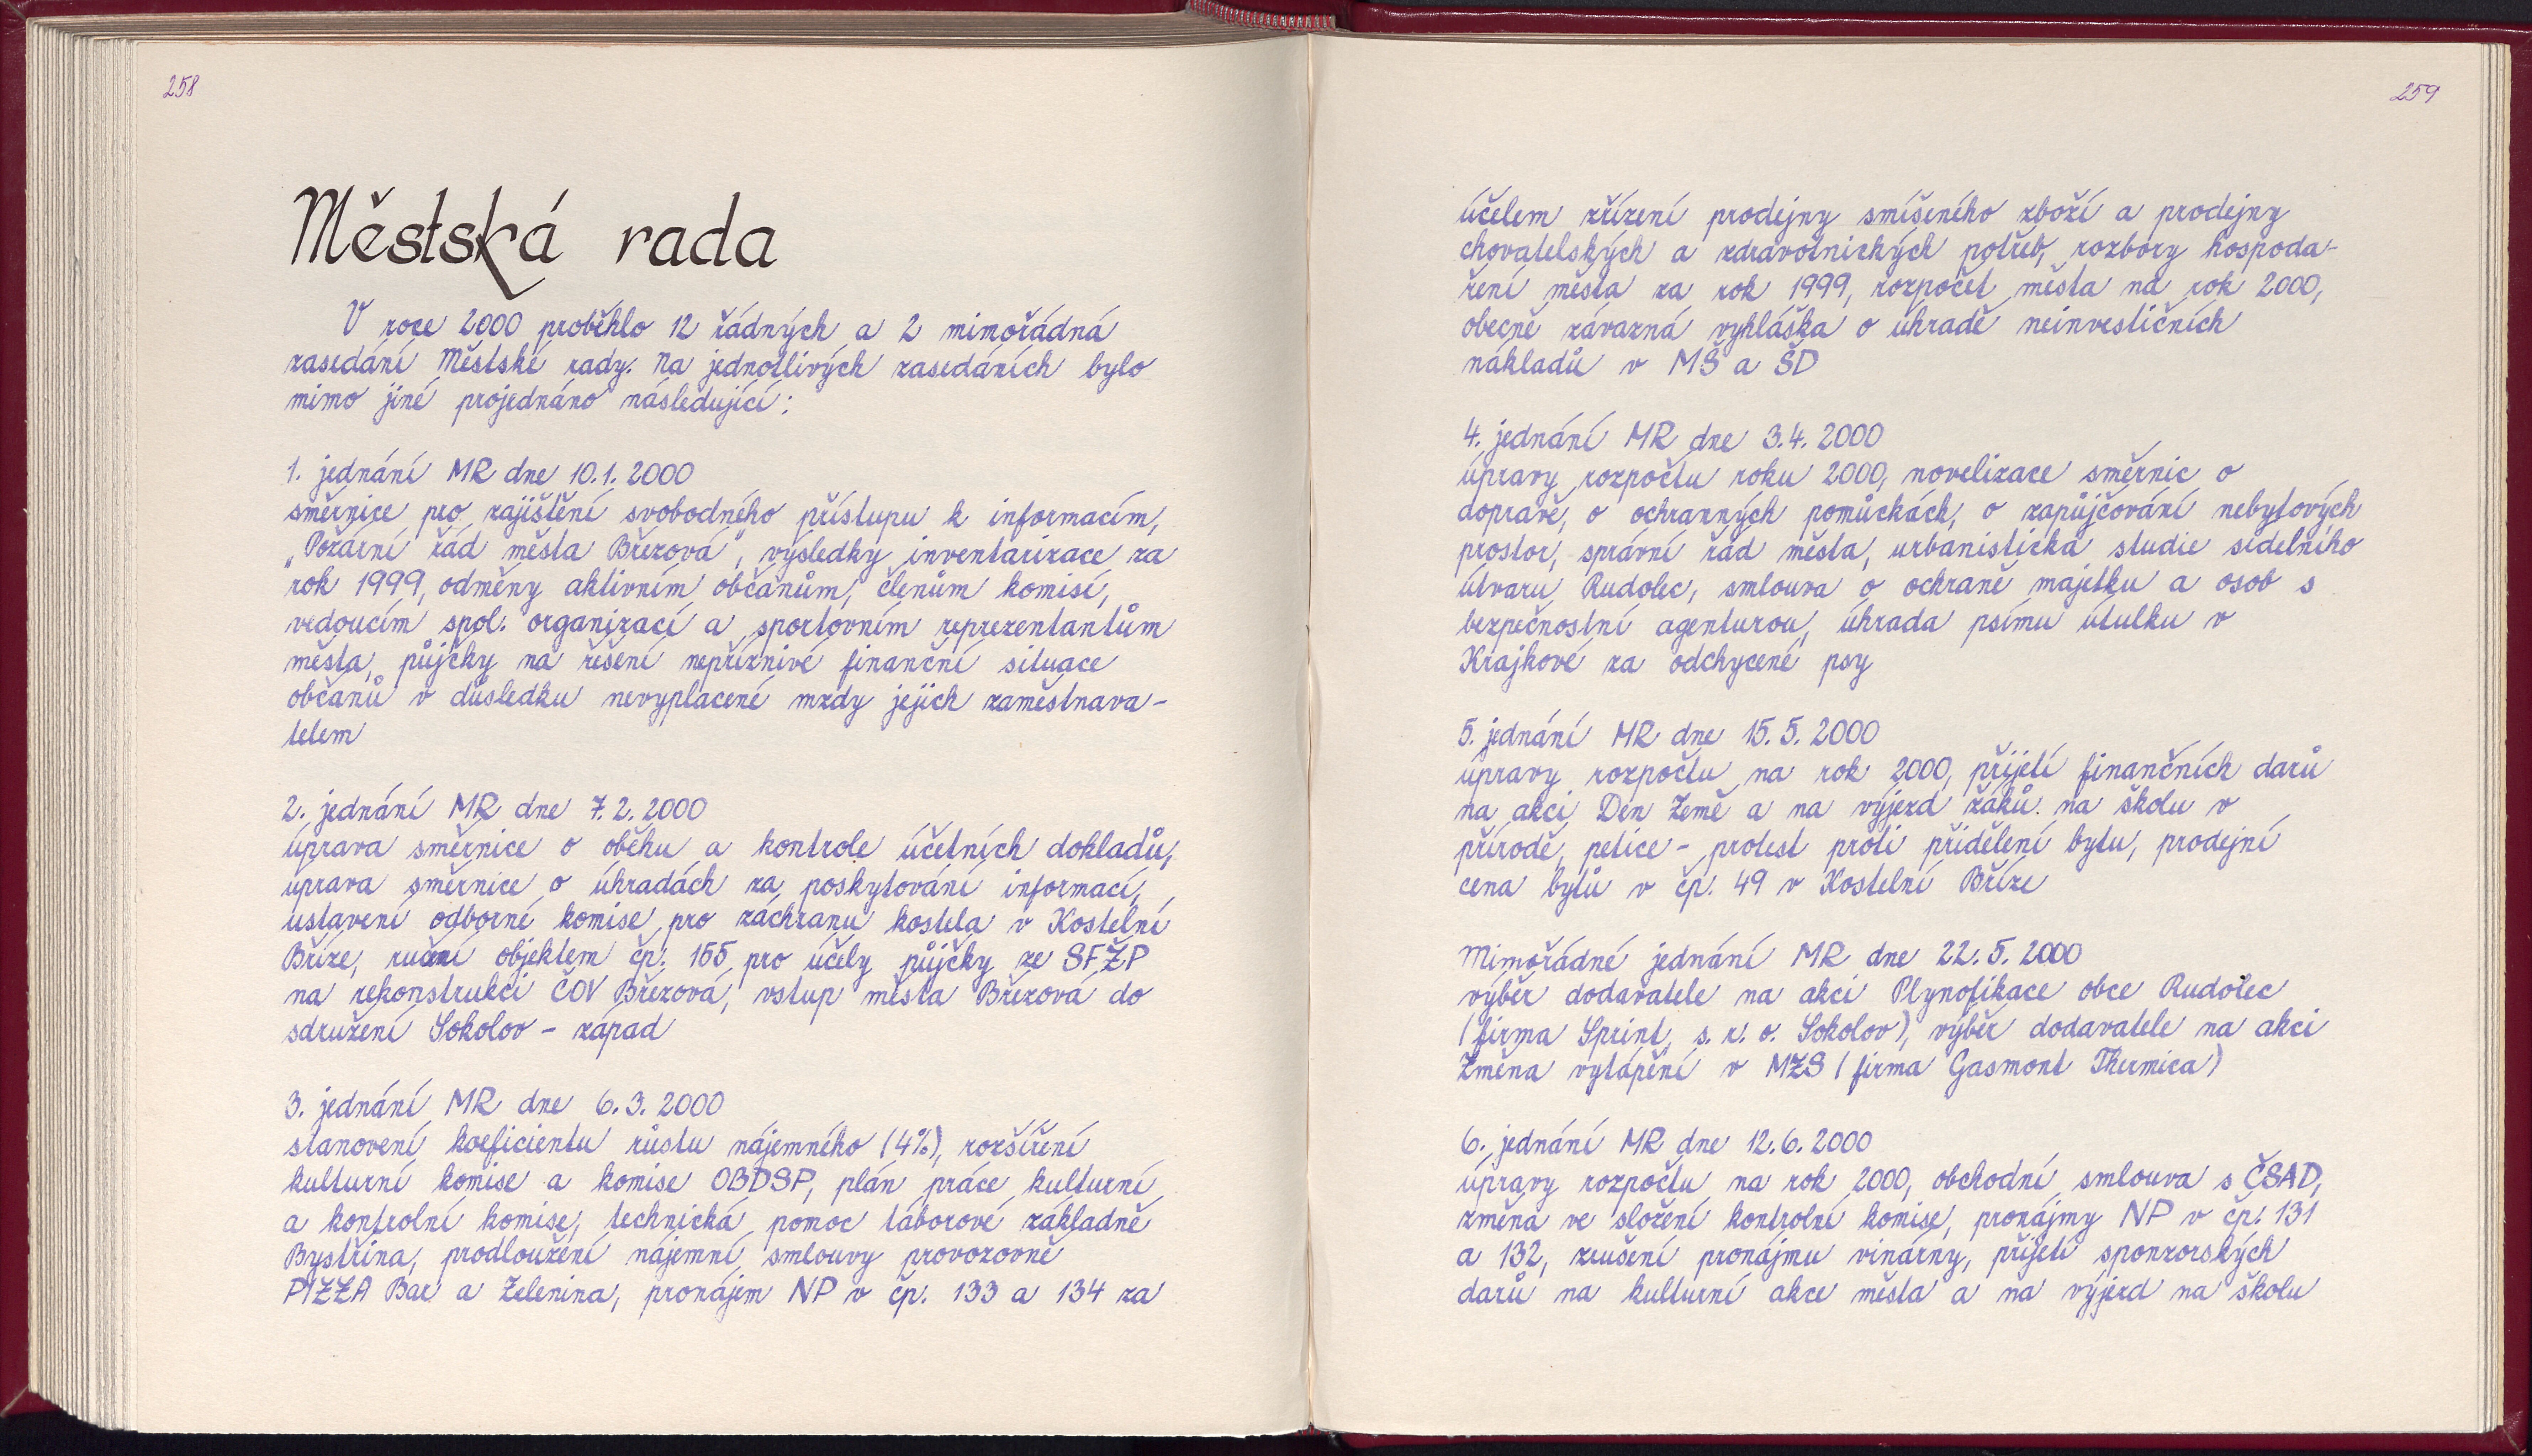 258
Městská rada
V roce 2000 proběhlo 12 řádných a 2 mimořádná
zasedání Městské rady. Na jednotlivých zasedáních bylo
mimo jiné projednáno následující:
1. jednání MR dne 10.1.2000
směrnice pro zajištění svobodného přístupu k informacím,
„Požární řád města Březová", výsledky inventarizace za
rok 1999, odměny aktivním občanům, členům komisí,
vedoucím spol. organizací a sportovním reprezentantům
města, půjčky na řešení nepříznivé finanční situace
občanů v důsledku nevyplacené mzdy jejich zaměstnava-
telem
2. jednání MR dne 7.2.2000
úprava směrnice o oběhu a kontrole účetních dokladů,
úprava směrnice o úhradách za poskytování informací,
ustavení odborné komise pro záchranu kostela v Kostelní
Bříze, ručení objektem čp. 155 pro účely půjčky ze SFŽP
na rekonstrukci ČOV Březová, vstup města Březová do
sdružení Sokolov - západ
3. jednání MR dne 6.3.2000
stanovení koeficientu růstu nájemného (4%), rozšíření
kulturní komise a komise OBDSP, plán práce kulturní
a kontrolní komise, technická pomoc táborové základně
Bystřina, prodloužení nájemní smlouvy provozovně
PIZZA Bar a Zelenina, pronájem NP v čp. 133 a 134 za
259
účelem zřízení prodejny smíšeného zboží a prodejny
chovatelských a zdravotnických potřeb, rozbory hospoda-
ření města za rok 1999, rozpočet města na rok 2000,
obecně závazná vyhláška o úhradě neinvestičních
nákladů v MŠ a ŠD
4. jednání MR dne 3.4.2000
úpravy rozpočtu roku 2000, novelizace směrnic o
dopravě, o ochranných pomůckách, o zapůjčování nebytových
prostor, správní řád města, urbanistická studie sídelního
útvaru Rudolec, smlouva o ochraně majetku a osob s
bezpečnostní agenturou, úhrada psímu útulku v
Krajkové za odchycené psy
5. jednání MR dne 15.5.2000
úpravy rozpočtu na rok 2000, přijetí finančních darů
na akci Den Země a na výjezd žáků na školu v
přírodě, petice - protest proti přidělení bytu, prodejní
cena bytů v čp. 49 v Kostelní Bříze
Mimořádné jednání MR dne 22.5.2000
výběr dodavatele na akci Plynofikace obce Rudolec
(firma Sprint, s. r. o. Sokolov), výběr dodavatele na akci
Změna vytápění v MZS (firma Gasmont Thermica)
6. jednání MR dne 12.6.2000
úpravy rozpočtu na rok 2000, obchodní smlouva s ČSAD,
změna ve složení kontrolní komise, pronájmy NP v čp. 131
a 132, zrušení pronájmu vinárny, přijetí sponzorských
darů na kulturní akce města a na výjezd na školu